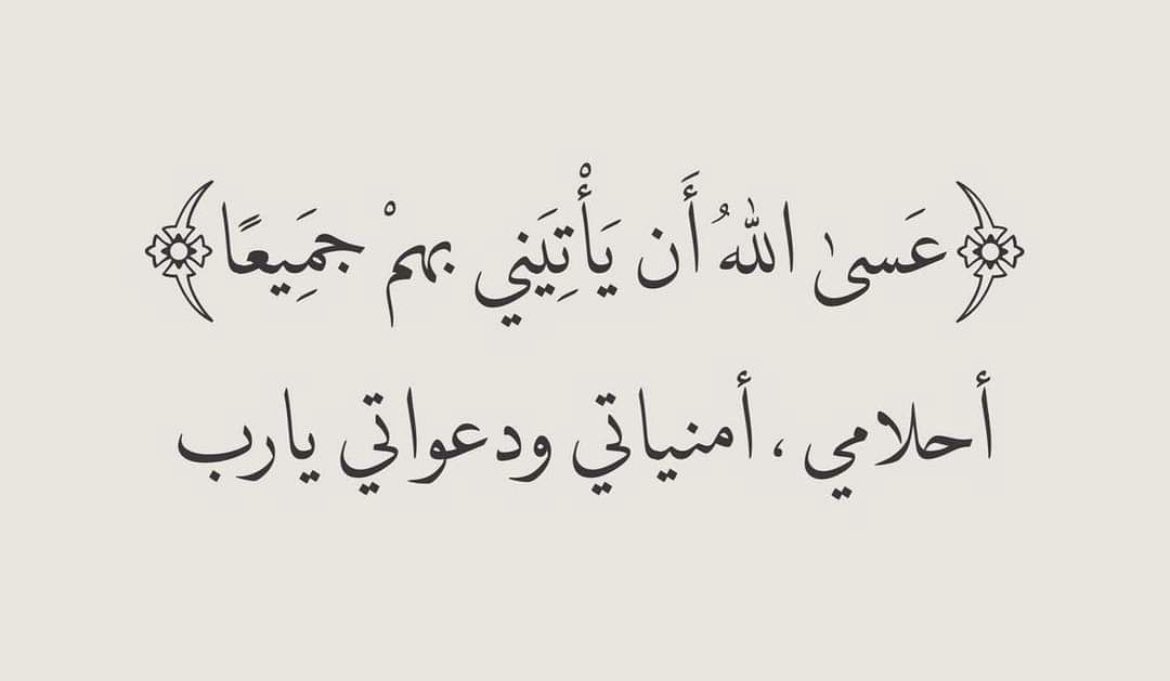 ﴿عَسىٰ اللهُ أَن يَأْتِيَني بهمْ جَمِيعًا﴾
أحلامي ، أمنياتي ودعواتي يارب